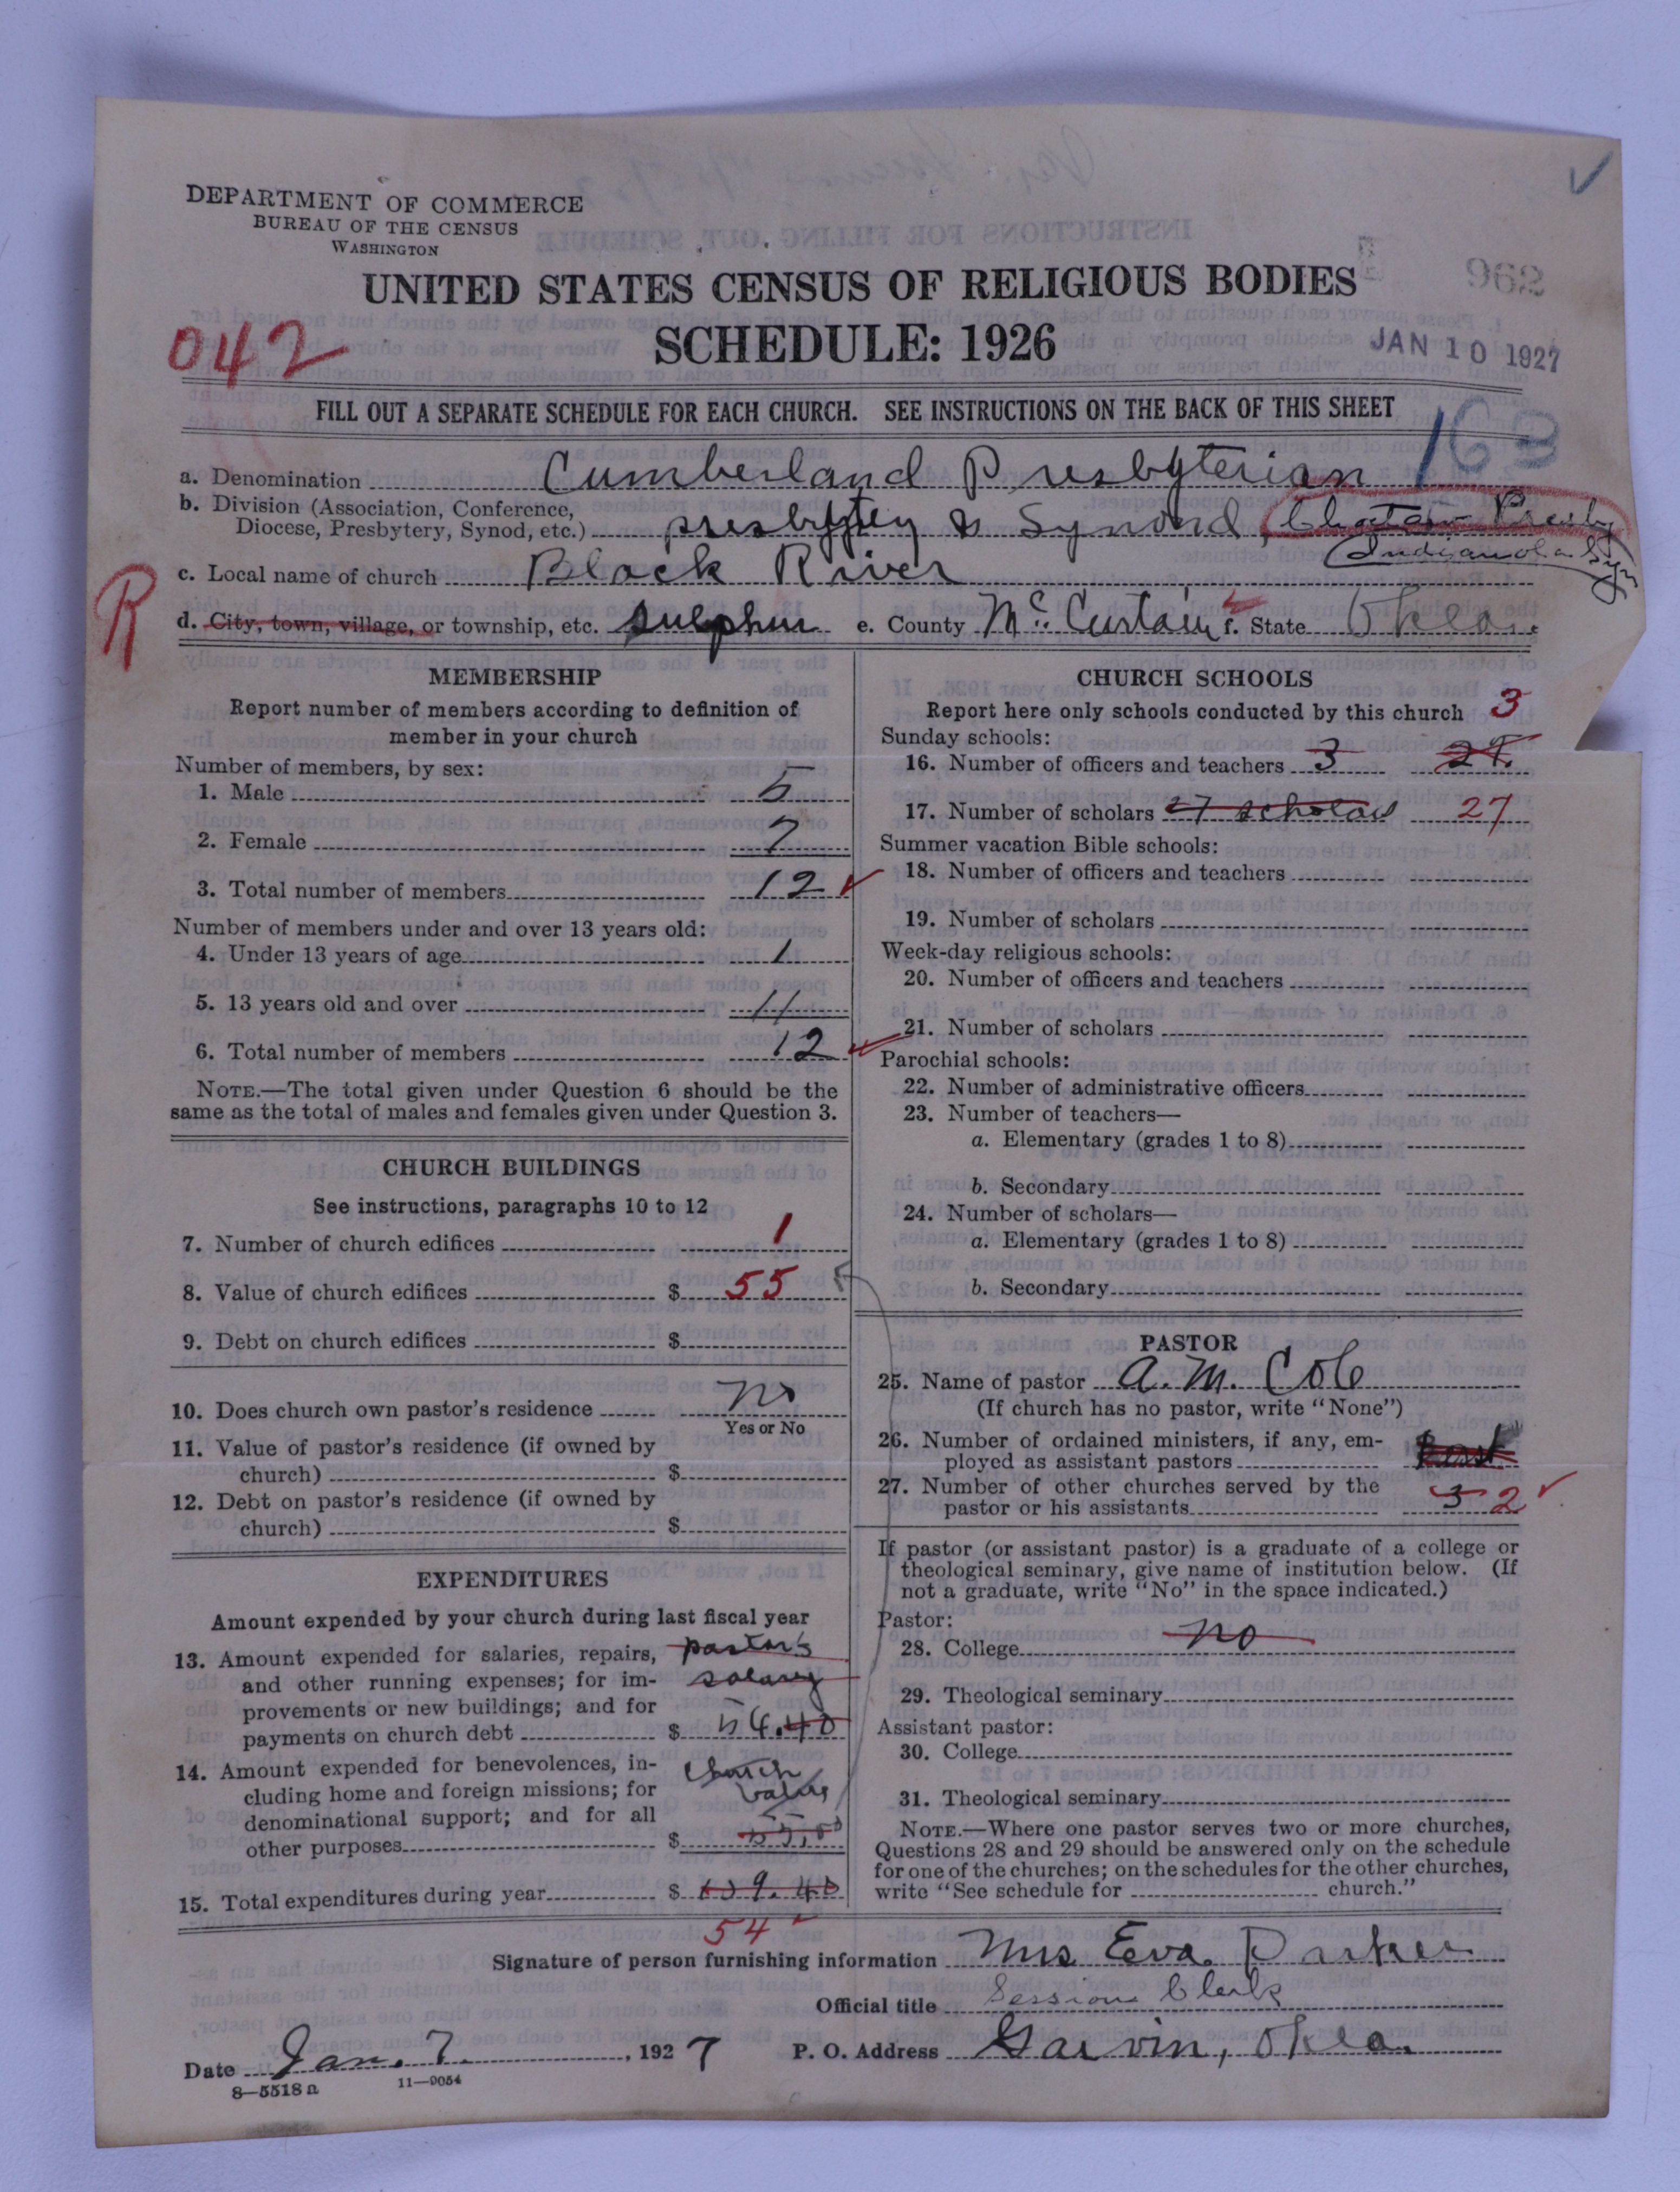 DEPARTMENT OF COMMERCE
BUREAU OF THE CENSUS
WASHINGTON
UNITED STATES CENSUS OF RELIGIOUS BODIES
SCHEDULE: 1926
042
962
JAN 10 1927
FILL OUT A SEPARATE SCHEDULE FOR EACH CHURCH. SEE INSTRUCTIONS ON THE BACK OF THIS SHEET
a. Denomination Cumberland Presbyterian
b. Division (Association, Conference,
Diocese, Presbytery, Synod, etc.) presbytey & Synond,
Indianola Syn
c. Local name of church Black River
R
d. City, town, village, or township, etc. sulphur e. County McCurtain f. State Okla.
MEMBERSHIP
Report number of members according to definition of
member in your church
Number of members, by sex:
1. Male 5
2. Female 7
3. Total number of members 12
Number of members under and over 13 years old:
4. Under 13 years of age 1
5. 13 years old and over 11
6. Total number of members 12
NOTE.—The total given under Question 6 should be the
same as the total of males and females given under Question 3.
CHURCH BUILDINGS
See instructions, paragraphs 10 to 12
7. Number of church edifices 1
8. Value of church edifices $ 55
9. Debt on church edifices $
10. Does church own pastor's residence no
Yes or No
11. Value of pastor's residence (if owned by
church) $
12. Debt on pastor's residence (if owned by
church) $
EXPENDITURES
Amount expended by your church during last fiscal year
13. Amount expended for salaries, repairs, pastor's
and other running expenses; for im- salary
provements or new buildings; and for
payments on church debt $ 54.40
14. Amount expended for benevolences, in- church
cluding home and foreign missions; for value
denominational support; and for all
other purposes $ 55,00
15. Total expenditures during year $ 109.40
54
CHURCH SCHOOLS
Report here only schools conducted by this church 3
Sunday schools:
16. Number of officers and teachers 3
17. Number of scholars 27 scholars 27
Summer vacation Bible schools:
18. Number of officers and teachers
19. Number of scholars
Week-day religious schools:
20. Number of officers and teachers
21. Number of scholars
Parochial schools:
22. Number of administrative officers
23. Number of teachers—
a. Elementary (grades 1 to 8)
b. Secondary
24. Number of scholars—
a. Elementary (grades 1 to 8)
b. Secondary
PASTOR
25. Name of pastor A. M. Cole
(If church has no pastor, write "None")
26. Number of ordained ministers, if any, em-
ployed as assistant pastors
27. Number of other churches served by the
pastor or his assistants 3 2
If pastor (or assistant pastor) is a graduate of a college or
theological seminary, give name of institution below. (If
not a graduate, write "No" in the space indicated.)
Pastor:
28. College no
29. Theological seminary
Assistant pastor:
30. College
31. Theological seminary
NOTE.—Where one pastor serves two or more churches,
Questions 28 and 29 should be answered only on the schedule
for one of the churches; on the schedules for the other churches,
write "See schedule for church."
Signature of person furnishing information Mrs Eva Parker
Official title Session Clerk
Date Jan. 7, 1927 P. O. Address Garvin, Okla.
8—5518a 11—9054